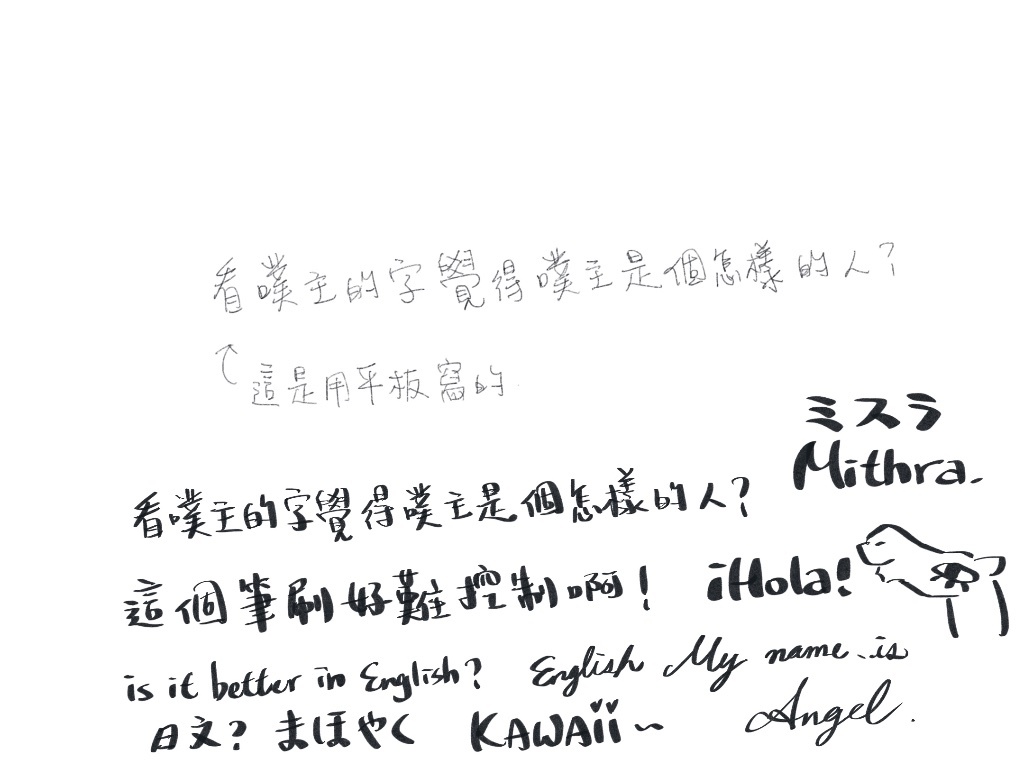 看噗主的字覺得噗主是個怎樣的人?
這是用平板寫的
ミスラ
Mithra.
看噗主的字覺得噗主是個怎樣的人?
這個筆刷好難控制啊! ¡Hola!
is it better in English? English My name is
日文? まほやく KAWAii~ Angel.